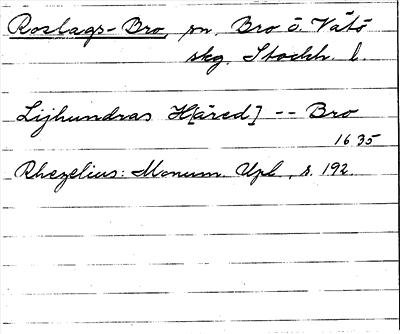 Roslags-Bro, sn, Bro o. Vätö
skg, Stockh. l.
Lijhundras H[äred] -- Bro
1635
Rhezelius: Monum. Upl., s. 192.